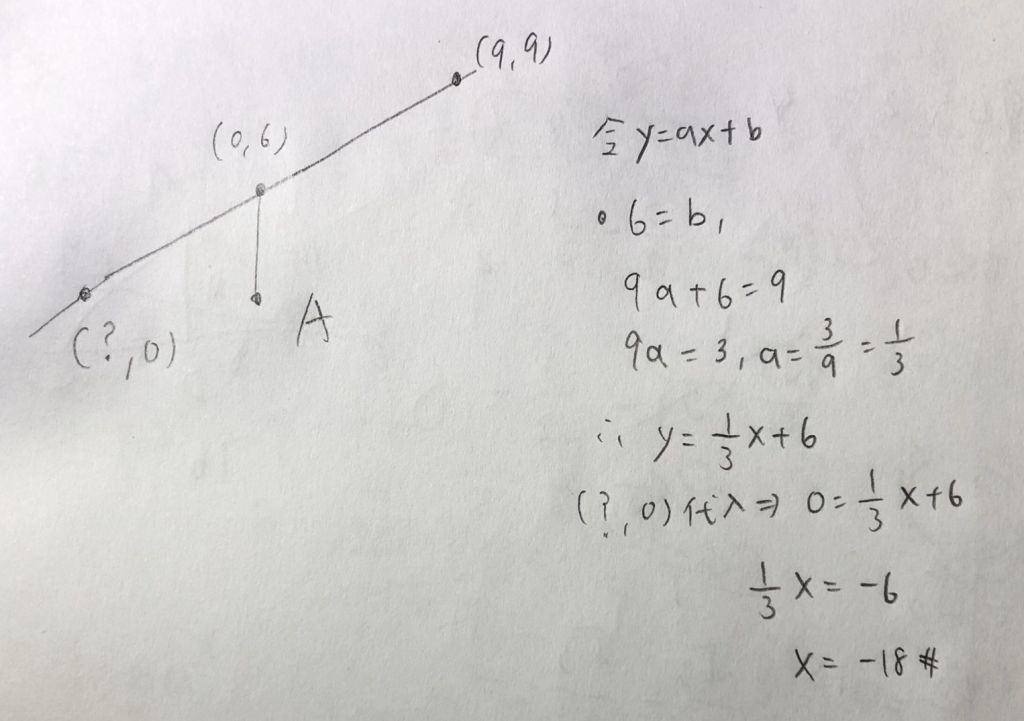 (9,9)
(0,6)
(?,0)
A
令 y=ax+b
• 6=b,
9a+6=9
9a=3, a=3/9=1/3
∴ y=1/3x+6
(?,0)代入⇒ 0=1/3x+6
1/3x=-6
x=-18#